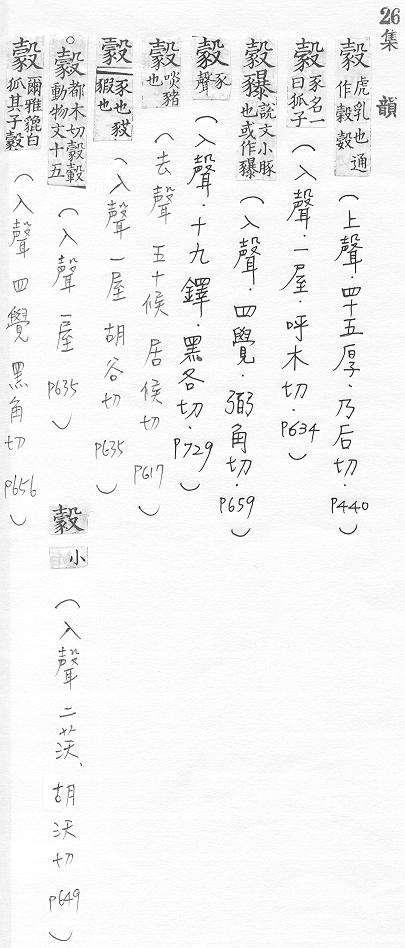 26
集韻
㝅 虎乳也通作穀㝅 (上聲.四十五厚.乃后切.P440)
豰 豕名一曰狐子 (入聲.一屋.呼木切.P634)
豰 貜 說文小豚也或作 (入聲.四覺.弼角切.P659)
豰 豕聲 (入聲.十九鐸.黑各切.P729)
豰 啖豬也 (去聲 五十候 居候切 P617)
豰 豕也豭也 (入聲 一屋 胡谷切 P635)
。豰 都木切 動物文十五 (入聲 一屋 P635)
豰 小 (入聲 二茯、胡沃切 P649)
豰 爾雅貔白狐其子豰 (入聲 四覺 黑角切 P656)